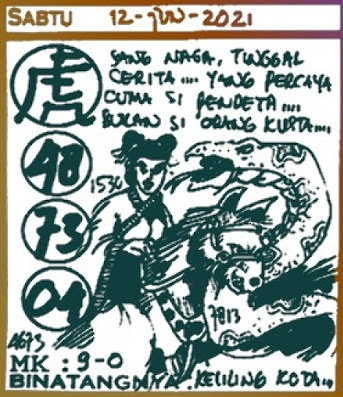 SABTU 12-JUN-2021
虎
SANG NAGA, TINGGAL
CERITA .... YANG PERCAYA
CUMA SI PENDETA ....
BUKAN SI ORANG KUSTA....
48
1530
73
04
7813
4673
MK : 9-0
BINATANGNYA KELILING KOTA....